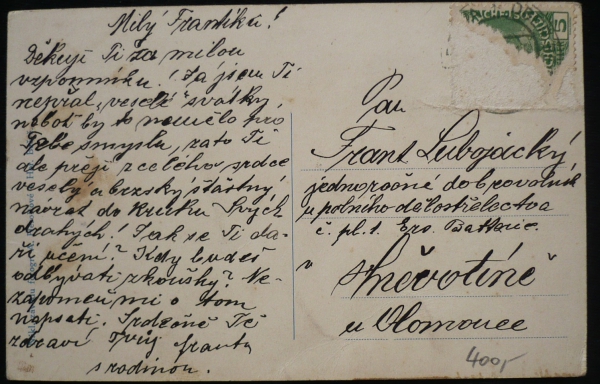 Milý Frantíku!
Děkuji Ti za milou
vzpomínku! Já jsem Ti
nepřál "veselé" svátky,
neboť by to nemělo pro
Tebe smyslu, zato Ti
ale přeji z celého srdce
veselý a brzský šťastný
návrat do kruhu Svých
drahých! Jak se Ti da-
ří učení? Kdy budeš
odbývati zkoušky? Ne-
zapomeň mi o tom
napsati. Srdečně Tě
zdraví Tvůj Franta
s rodinou.
5
Pan
Frant Lubojácký,
jednoročně dobrovolník
u polního dělostřelectva
č. pl. 1. Ers. Batterie
v
Hněvotíně
u Olomouce
400,-